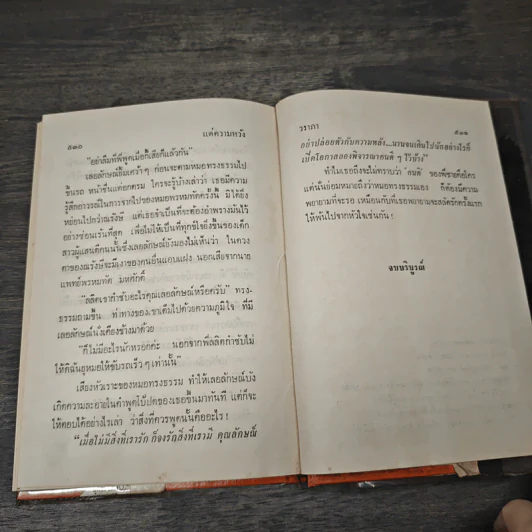 ๕๓๐
แค่ความหวัง
"อย่าลืมที่พี่พูดเมื่อกี้เสียก็แล้วกัน"
เลอลักษณ์ยิ้มเศร้าๆ ก่อนจะตามหมอทรงธรรมไป
ขึ้นรถ หน้าซึ่งแต่ยกคม ใครจะรู้บ้างเล่าว่า เธอมีความ
รู้สึกอาวรณ์ในการจากไปของหมอพรหมทัตครั้งนี้ มิได้ยิ่ง
หย่อนไปกว่าณรังษี แต่เธอจำเป็นที่จะต้องอำพรางมันไว้
อย่างซ่อนเร้นที่สุด เพื่อไม่ให้เป็นที่ทุกข์ใจยิ่งขึ้นของเด็ก
สาวผู้แสนดีคนนั้นซึ่งเลอลักษณ์ยังมองไม่เห็นว่า ในดวง
ตาของณรังษีจะมีเงาของคนอื่นแอบแฝง นอกเสียจากนาย
แพทย์พรหมทัต มหศักดิ์
"ลลิตเขากำชับอะไรคุณเลอลักษณ์หรือครับ" ทรง-
ธรรมถามขึ้น ท่าทางของเขาเต็มไปด้วยความภูมิใจ ที่มี
เลอลักษณ์นั่งเคียงข้างมาด้วย
"ก็ไม่มีอะไรนักหรอกค่ะ นอกจากพี่ลลิตกำชับไม่
ให้ดิฉันยุหมอให้ขับรถเร็วๆ เท่านั้น"
เสียงหัวเราะของหมอทรงธรรม ทำให้เลอลักษณ์บัง
เกิดความละอายในคำพูดโป้ปดของเธอขึ้นมาทันที แต่ก็จะ
ให้ตอบได้อย่างไรเล่า ว่าสิ่งที่ควรพูดนั้นคืออะไร !
"เมื่อไม่มีสิ่งที่เรารัก ก็จงรักสิ่งที่เรามี คุณลักษณ์
วราภา
๕๓๑
อย่าปล่อยตัวกับความหลัง...นานจนเกินไปนักอย่างไรก็
เปิดโอกาสลองพิจารณาคนดี ๆ ไว้บ้าง"
ทำไมเธอถึงจะไม่ทราบว่า 'คนดี' ของพี่ชายคือใคร
แต่นั่นย่อมหมายถึงว่าหมอทรงธรรมเอง ก็ต้องมีความ
พยายามที่จะรอ เหมือนกับที่เธอพยายามจะสลัดรักครั้งแรก
ให้พ้นไปจากหัวใจเช่นกัน !
จบบริบูรณ์